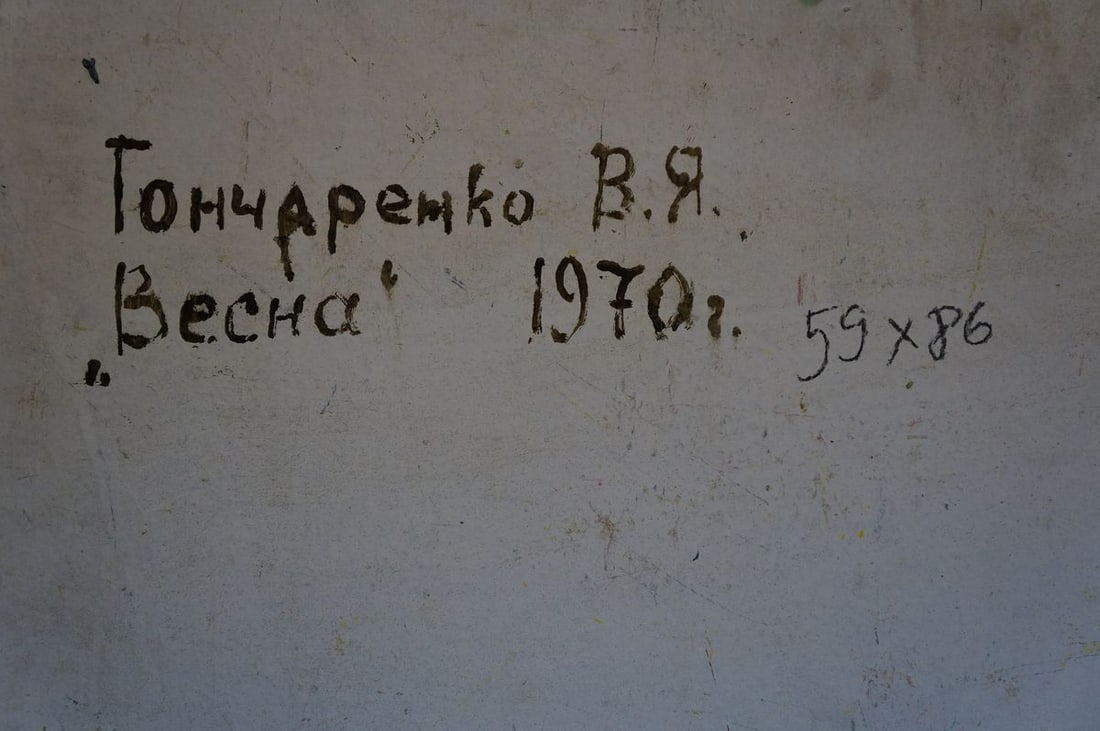 Гончаренко В.Я.
„Весна‘ 1970г. 59 х 86